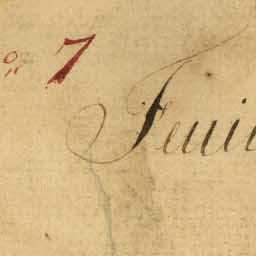 ° 7
Feuil